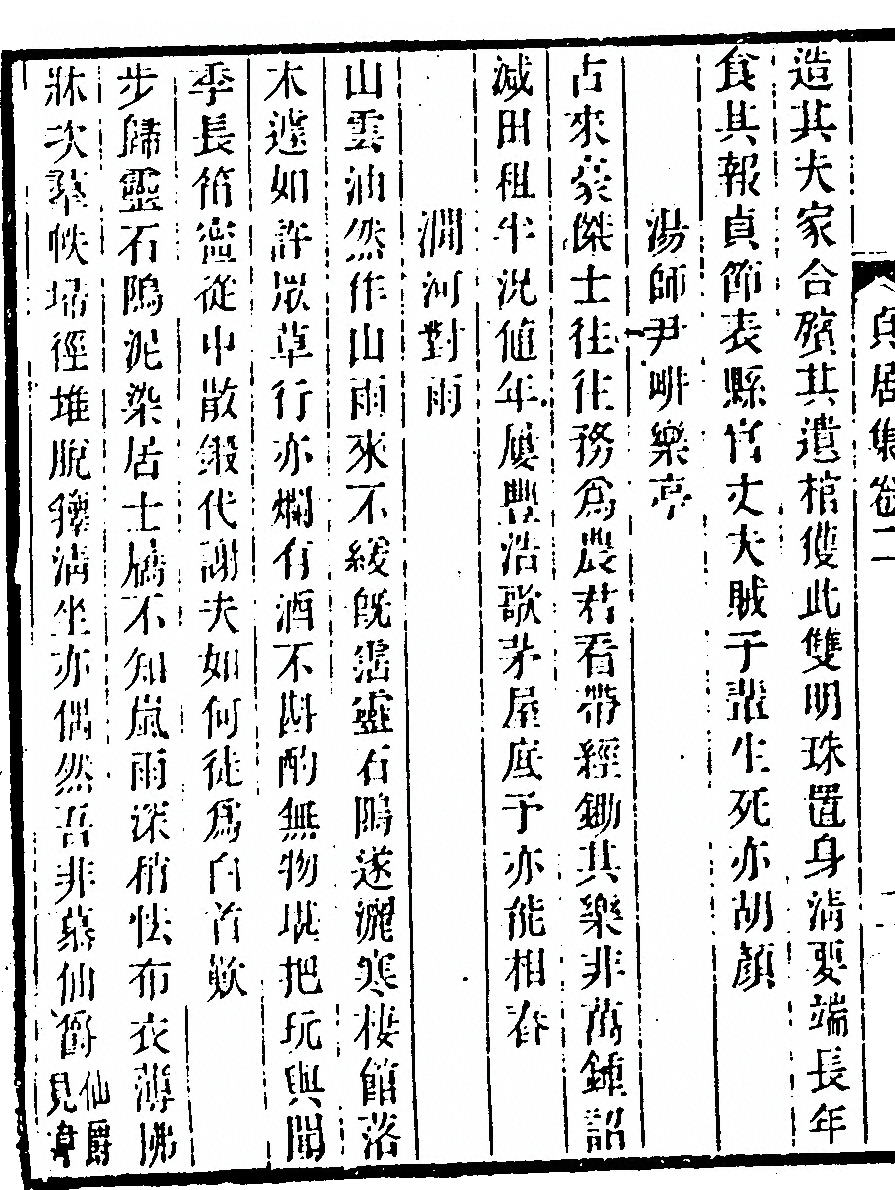 貞居集卷二
造其夫家合殯其遺棺獲此雙明珠置身淸要端長年
食其報貞節表縣官丈夫賊于誰生死亦胡顏
湯師尹畊樂亭
古來豪傑士往往務爲農君看帶經鋤其樂非萬鍾詔
減田租半況値年屢豐浩歌茅屋底予亦能相舂
澗河對雨
山雲油然作山雨來不緩旣霑靈石隝遂灑寒棲館落
木遽如許眾草行亦爛有酒不斟酌無物堪把玩與聞
季長笛密從中散鍛代謝夫如何徒爲白首歎
步歸靈石隝泥染居士屩不知嵐雨深稍怯布衣薄拂
牀次羣帙埽徑堆脫籜淸坐亦偶然吾非慕仙爵仙爵見身